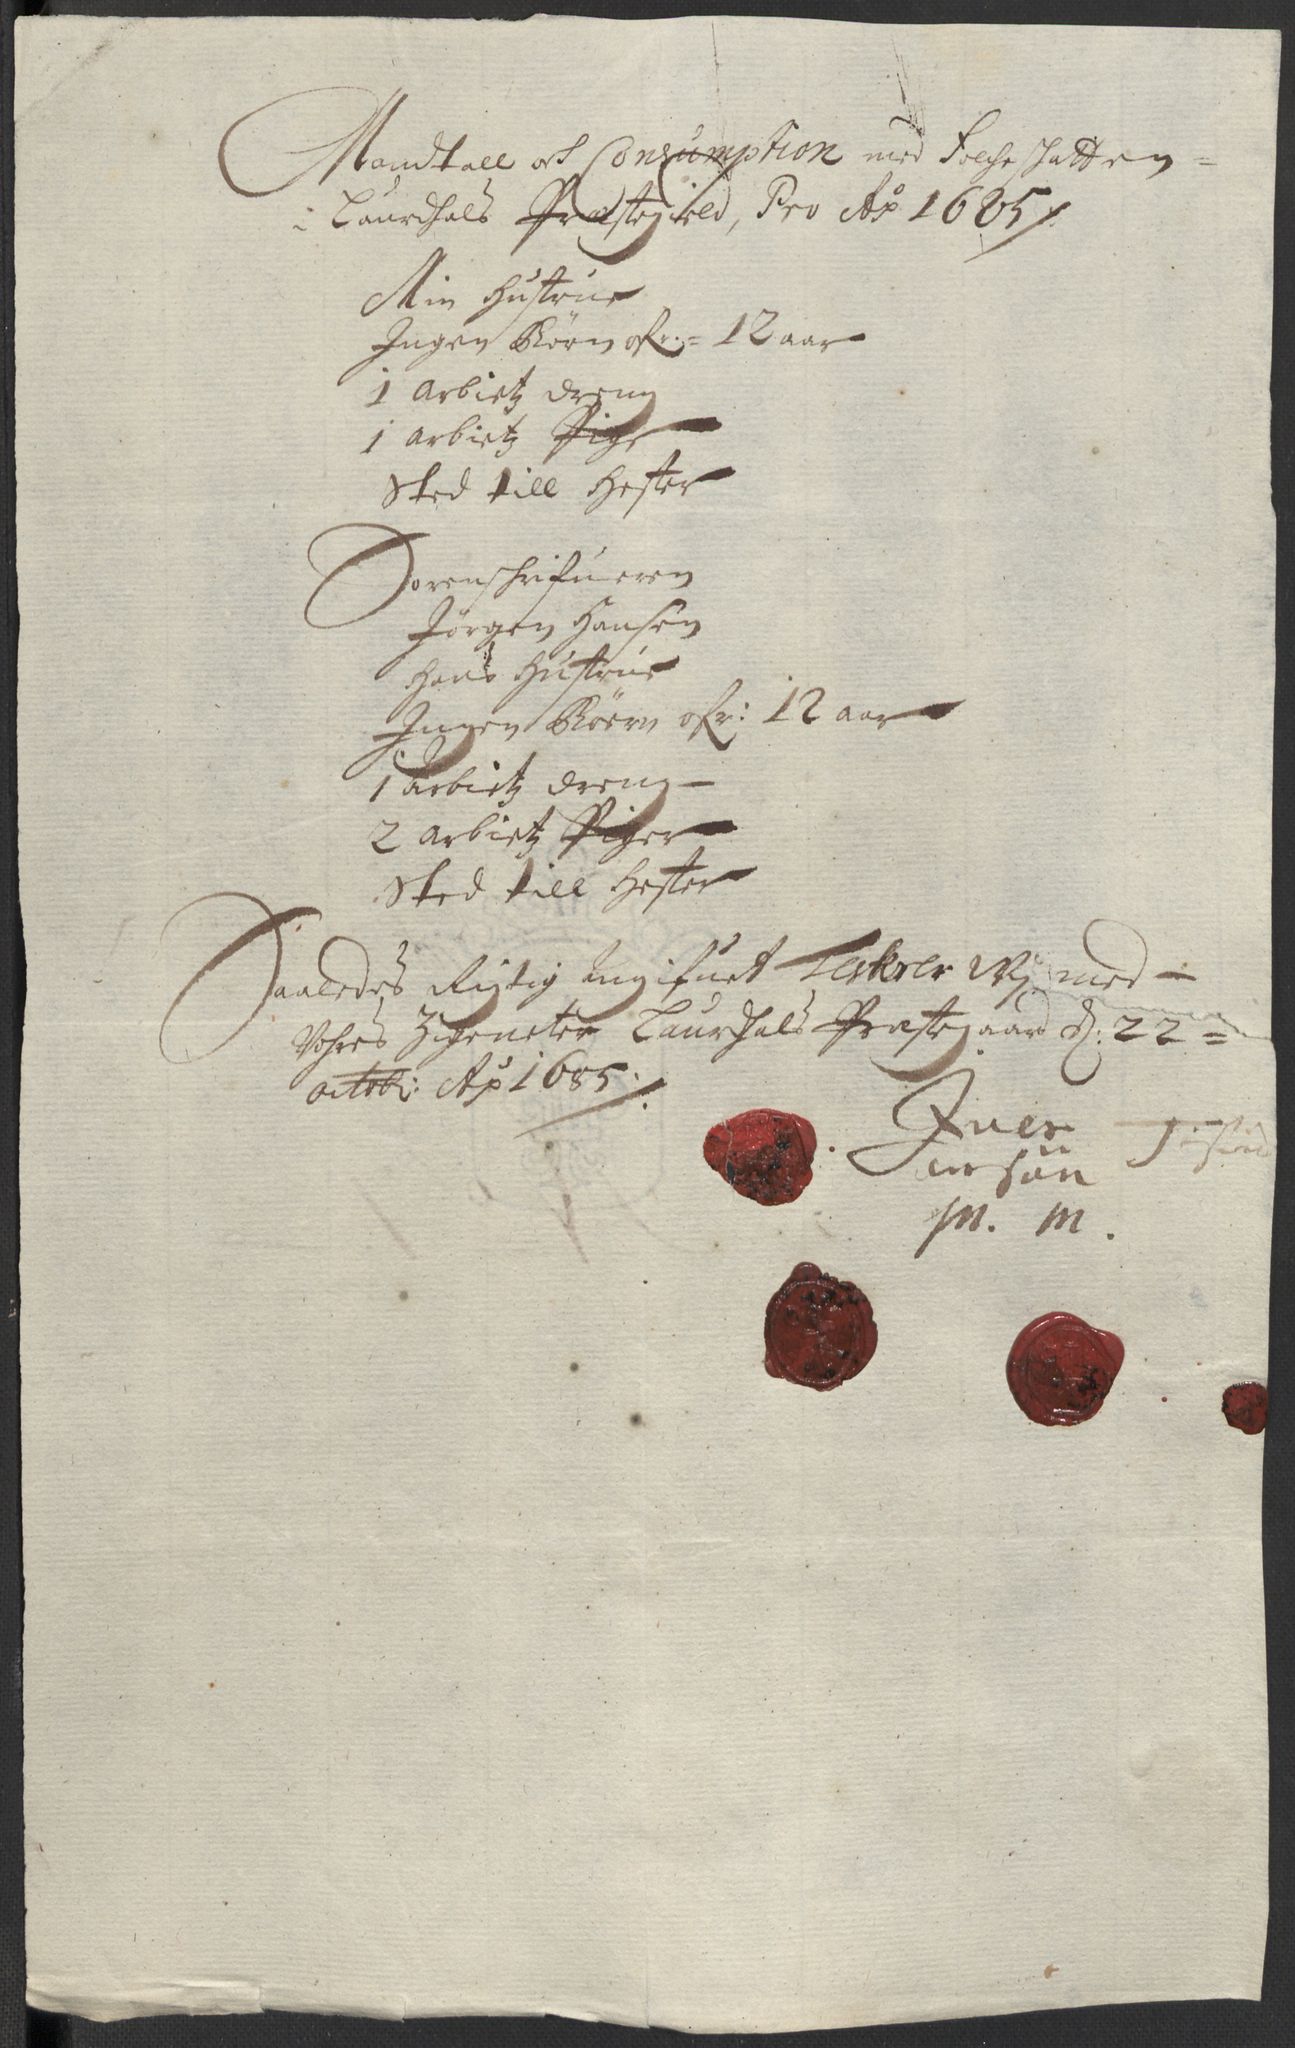 Mandtall ofr Consumption med Folcheschatten =
i Laurdhals Præstegield, Pro Aō 1685 /.
Min Hustrue
Ingen Børn ofr: = 12 aar
1 arbietz dreng
1 arbietz Pige
Sted till Hester
Sorenschrifueren
Jørgen Hansen
Hans Hustrue
Ingen Børn ofr: 12 aar
1 arbietz dreng
2 arbietz Piger
Sted till Hester
Saaledes Rigtig angifuet Testerer Wj med
Vohres Zigneter Laurdhals Præstegaard d: 22 =
octobr: Aō 1685 /.
Iuer
Iuersøn
m. m.